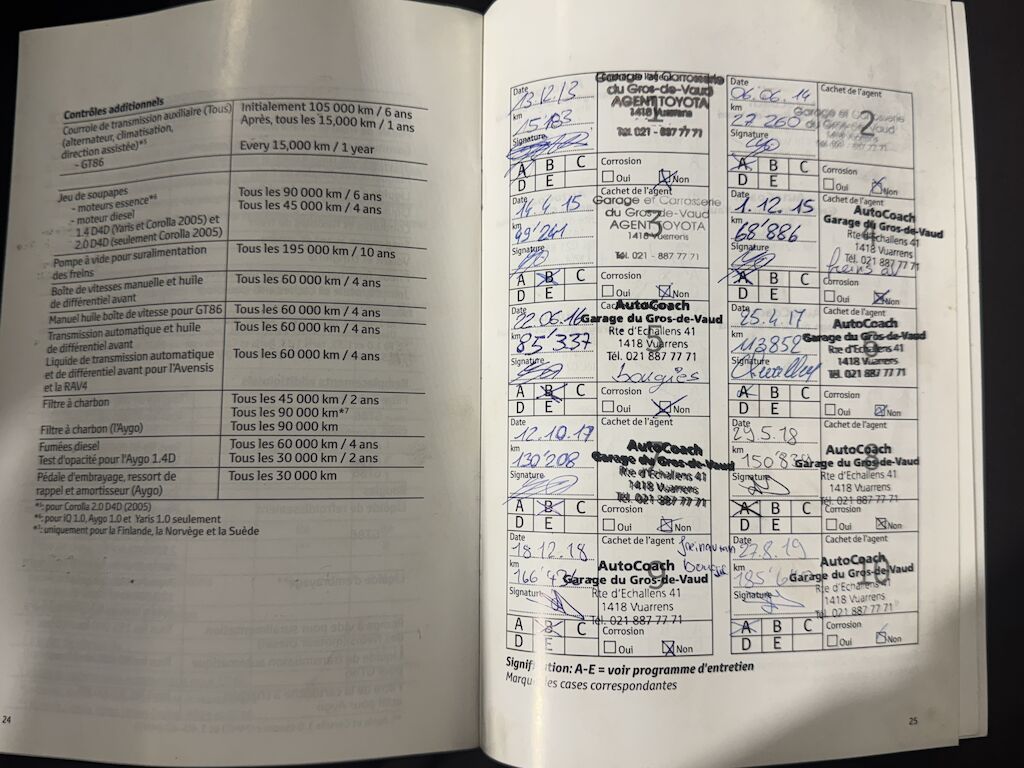 Contrôles additionnels
Courroie de transmission auxiliaire (Tous)
(alternateur, climatisation,
direction assistée)*⁵
- GT86
Initialement 105 000 km / 6 ans
Après, tous les 15,000 km / 1 ans
Every 15,000 km / 1 year
Jeu de soupapes
- moteurs essence*⁶
- moteur diesel
1.4 D4D (Yaris et Corolla 2005) et
2.0 D4D (seulement Corolla 2005)
Tous les 90 000 km / 6 ans
Tous les 45 000 km / 4 ans
Pompe à vide pour suralimentation
des freins
Tous les 195 000 km / 10 ans
Boîte de vitesses manuelle et huile
de différentiel avant
Tous les 60 000 km / 4 ans
Manuel huile boîte de vitesse pour GT86
Tous les 60 000 km / 4 ans
Transmission automatique et huile
de différentiel avant
Tous les 60 000 km / 4 ans
Liquide de transmission automatique
et de différentiel avant pour l'Avensis
et la RAV4
Tous les 60 000 km / 4 ans
Filtre à charbon
Tous les 45 000 km / 2 ans
Tous les 90 000 km*⁷
Filtre à charbon (l'Aygo)
Tous les 90 000 km
Fumées diesel
Tous les 60 000 km / 4 ans
Test d'opacité pour l'Aygo 1.4D
Tous les 30 000 km / 2 ans
Pédale d'embrayage, ressort de
rappel et amortisseur (Aygo)
Tous les 30 000 km
*⁵: pour Corolla 2.0 D4D (2005)
*⁶: pour iQ 1.0, Aygo 1.0 et Yaris 1.0 seulement
*⁷: uniquement pour la Finlande, la Norvège et la Suède
24
Date
13.12.13
km
15183
Signature
Garage et Carrosserie
du Gros-de-Vaud
AGENT TOYOTA
1418 Vuarrens
Tél. 021 - 887 77 71
1
A B C
D E
Corrosion
Oui Non
Date
06.06.14
km
27 260
Signature
Cachet de l'agent
Garage et Carrosserie
du Gros-de-Vaud
2
A B C
D E
Corrosion
Oui Non
Date
14.4.15
km
49'241
Signature
Cachet de l'agent
Garage et Carrosserie
du Gros-de-Vaud
AGENT TOYOTA
1418 Vuarrens
Tél. 021 - 887 77 71
3
A B C
D E
Corrosion
Oui Non
Date
1.12.15
km
68'886
Signature
Cachet de l'agent
AutoCoach
Garage du Gros-de-Vaud
Rte d'Echallens 41
1418 Vuarrens
Tél. 021 887 77 71
freins
A B C
D E
Corrosion
Oui Non
Date
22.06.16
km
85'337
Signature
AutoCoach
Garage du Gros-de-Vaud
Rte d'Echallens 41
1418 Vuarrens
Tél. 021 887 77 71
bougies
A B C
D E
Corrosion
Oui Non
Date
25.4.17
km
113852
Signature
Cachet de l'agent
AutoCoach
Garage du Gros-de-Vaud
Rte d'Echallens 41
1418 Vuarrens
Tél. 021 887 77 71
A B C
D E
Corrosion
Oui Non
Date
12.10.17
km
130'208
Signature
Cachet de l'agent
AutoCoach
Garage du Gros-de-Vaud
Rte d'Echallens 41
1418 Vuarrens
Tél. 021 887 77 71
A B C
D E
Corrosion
Oui Non
Date
29.5.18
km
Signature
Cachet de l'agent
AutoCoach
Garage du Gros-de-Vaud
Rte d'Echallens 41
1418 Vuarrens
Tél. 021 887 77 71
8
A B C
D E
Corrosion
Oui Non
Date
18.12.18
km
Signature
Cachet de l'agent
AutoCoach
Garage du Gros-de-Vaud
Rte d'Echallens 41
1418 Vuarrens
Tél. 021 887 77 71
9
A B C
D E
Corrosion
Oui Non
Date
27.8.19
km
Signature
Cachet de l'agent
AutoCoach
Garage du Gros-de-Vaud
Rte d'Echallens 41
1418 Vuarrens
Tél. 021 887 77 71
A B C
D E
Corrosion
Oui Non
A-E = voir programme d'entretien
les cases correspondantes
25